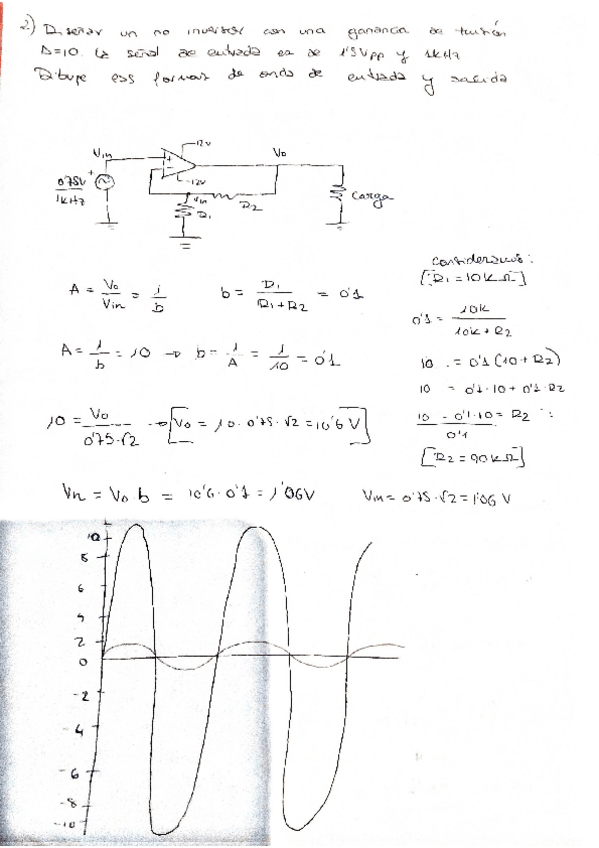 2) Diseñar un no inversor con una ganancia de tensión
A=10. La señal de entrada es de 1'5Vpp y 1kHz
Dibuje las formas de onda de entrada y salida
Vin
-12V
Vo
+
-
-12V
0'75V
1kHz
+
Vin
R1
R2
Carga
Consideramos:
[R1 = 10k Ω]
A = Vo/Vin = 1/b
b = R1/(R1+R2) = 0'1
0'1 = 10k/(10k+R2)
A = 1/b = 10 → b = 1/A = 1/10 = 0'1
10 = 0'1(10+R2)
10 = 0'1·10 + 0'1·R2
10 = Vo/(0'75·√2) → [Vo = 10·0'75·√2 = 10'6 V]
(10 - 0'1·10)/0'1 = R2 :
[R2 = 90k Ω]
Vn = Vo·b = 10'6·0'1 = 1'06V
Vin = 0'75·√2 = 1'06 V
10
8
6
4
2
0
-2
-4
-6
-8
-10